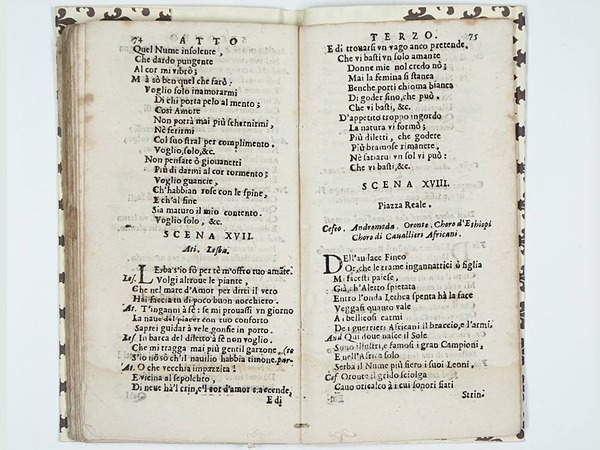 74
ATTO
Quel Nume insolente,
Che dardo pungente
Al cor mi vibrò;
Mà sò ben quel che farò.
Voglio solo inamorarmi
Di chi porta pelo al mento;
Così Amore
Non potrà mai più schernirmi,
Nè ferirmi
Col suo stral per complimento.
Voglio, solo, &c.
Non pensate ò giouanetti
Più di darmi al cor tormento;
Voglio guancie,
Ch'habbian rose con le spine,
E ch'al fine
Sia maturo il mio contento.
Voglio solo, &c.
SCENA XVII.
Ati. Lesba.
LEsba s'io sò per tè m'offro tuo amāte.
Les. Volgi altroue le piante,
Che nel mare d'Amor per dirti il vero
Hai faccia tù di poco buon nocchiero.
At. T'inganni à fè: se mi prouassi vn giorno
La naue del piacer con tuo conforto
Saprei guidar à vele gonfie in porto.
Les In barca del diletto à fè non voglio.
Che mi tragga mai più gentil garzone,
S'io nō sò ch'il nauilio habbia timone.
At. O che vecchia impazzita!
E vicina al sepolchro,
Di neue hà'l crin, e'l cor d'amor s'accende,
E di
TERZO.
75
E di trouarsi vn vago anco pretende.
Che vi basti vn solo amante
Donne mie nol credo nò;
Mai la femina si stanca
Benche porti chioma bianca
Di goder sino, che può.
Che vi basti, &c.
D'appetito troppo ingordo
La natura vi formò;
Più diletti, che godete
Più bramose rimanete,
Nè satiarui vn sol vi può:
Che vi basti, &c.
SCENA XVIII.
Piazza Reale.
Cefeo. Andromeda. Oronte. Choro d'Ethiopi
Choro di Cauallieri Africani.
DEll'audace Fineo
Or, che le trame ingannatrici ò figlia
M
paese,
Già, ch'Aletto spietata
Entro l'onda Lethea spenta hà la face
Veggasi quanto vale
A i bellicosi carmi
De i guerrieri Africani il braccio, e l'armi.
And Qui doue nasce il Sole
Sono illustri, e famosi i gran Campioni,
E nell'Africa solo
Serba il Nume più fiero i suoi Leoni,
Cef Oronte il grido sciolga
Cauo oricalco à i cui sonori fiati
Strin-